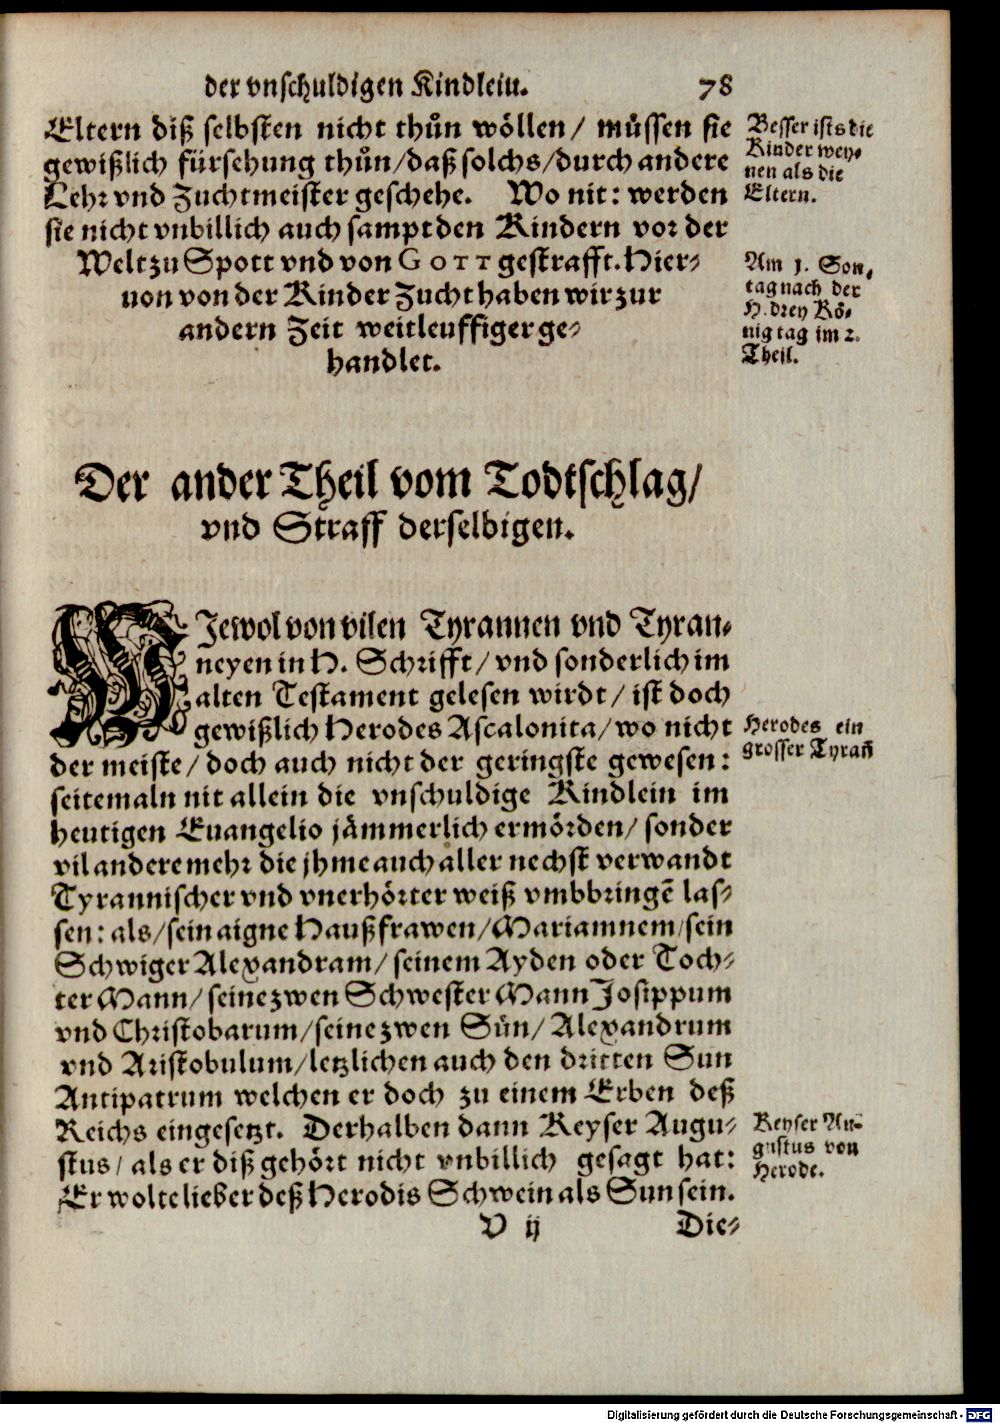 der vnschuldigen Kindlein. 78
Eltern diß selbsten nicht thůn wöllen/ müssen sie
gewißlich fürsehung thůn/daß solchs/durch andere
Lehr vnd Zuchtmeister geschehe. Wo nit: werden
sie nicht vnbillich auch sampt den Kindern vor der
Welt zu Spott vnd von GOTT gestrafft. Hier-
uon von der Kinder Zucht haben wir zur
andern Zeit weitleuffiger ge-
handlet.
Besser ists die
Kinder wey-
nen als die
Eltern.
Am 1. Son-
tag nach der
H. drey Kö-
nig tag im 2.
Theil.
Der ander Theil vom Todtschlag/
vnd Straff derselbigen.
WJewol von vilen Tyrannen vnd Tyran-
neyen in H. Schrifft/ vnd sonderlich im
alten Testament gelesen wirdt/ ist doch
gewißlich Herodes Ascalonita/ wo nicht
der meiste/ doch auch nicht der geringste gewesen:
seitemaln nit allein die vnschuldige Kindlein im
heutigen Euangelio jämmerlich ermörden/ sonder
vil andere mehr die jhme auch aller nechst verwandt
Tyrannischer vnd vnerhörter weiß vmbbringē las-
sen: als/ sein aigne Haußfrawen/ Mariamnem/ sein
Schwiger Alexandram/ seinem Ayden oder Toch-
ter Mann/ seine zwen Schwester Mann Josippum
vnd Christobarum/ seine zwen Sün/ Alexandrum
vnd Aristobulum/ letzlichen auch den dritten Sun
Antipatrum welchen er doch zu einem Erben deß
Reichs eingesetzt. Derhalben dann Keyser Augu-
stus/ als er diß gehört nicht vnbillich gesagt hat:
Er wolte lieber deß Herodis Schwein als Sun sein.
Herodes ein
grosser Tyrañ
Keyser Au-
gustus von
Herode.
V ij Die-
Digitalisierung gefördert durch die Deutsche Forschungsgemeinschaft - DFG